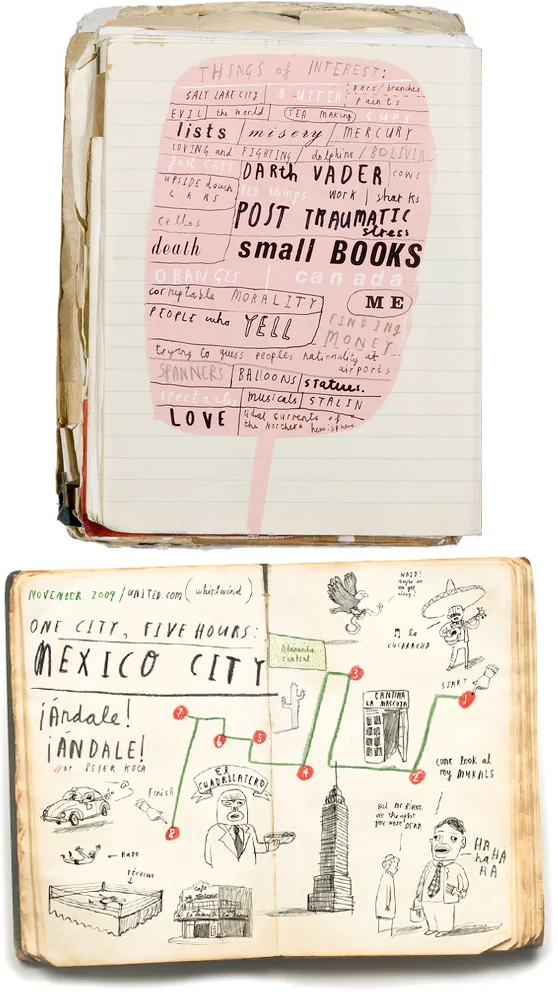 THINGS of INTEREST:
SALT LAKE CITY BUTTER Bars/branches
paints
EVIL the world TEA making CUPS
lists misery MERCURY
LOVING and FIGHTING dolphins BOLIVIA
fast CARS DARth VADER cows
UPSIDE down CARS red things work sharks
cellos POST TRAUMATIC stress
death small BOOKS
ORANGES canada
corruptable MORALITY ME
PEOPLE who YELL FINDING MONEY
trying to guess peoples nationality at airports
SPANNERS BALLOONS statues.
spectacles musicals STALIN
LOVE tidal currents of the Northern hemisphere
NOVEMBER 2009 / UNITED.COM (whirlwind)
ONE CITY, FIVE HOURS:
MEXICO CITY
¡Ándale!
¡ÁNDALE!
Alameda
central
7
6
5
4
3
2
1
8
Finish
START
EL
CUADRILATERO
CANTINA
LA MASCOTA
la
CUCARACHA
come look at
my MURALS
HA
haHA
HA
café